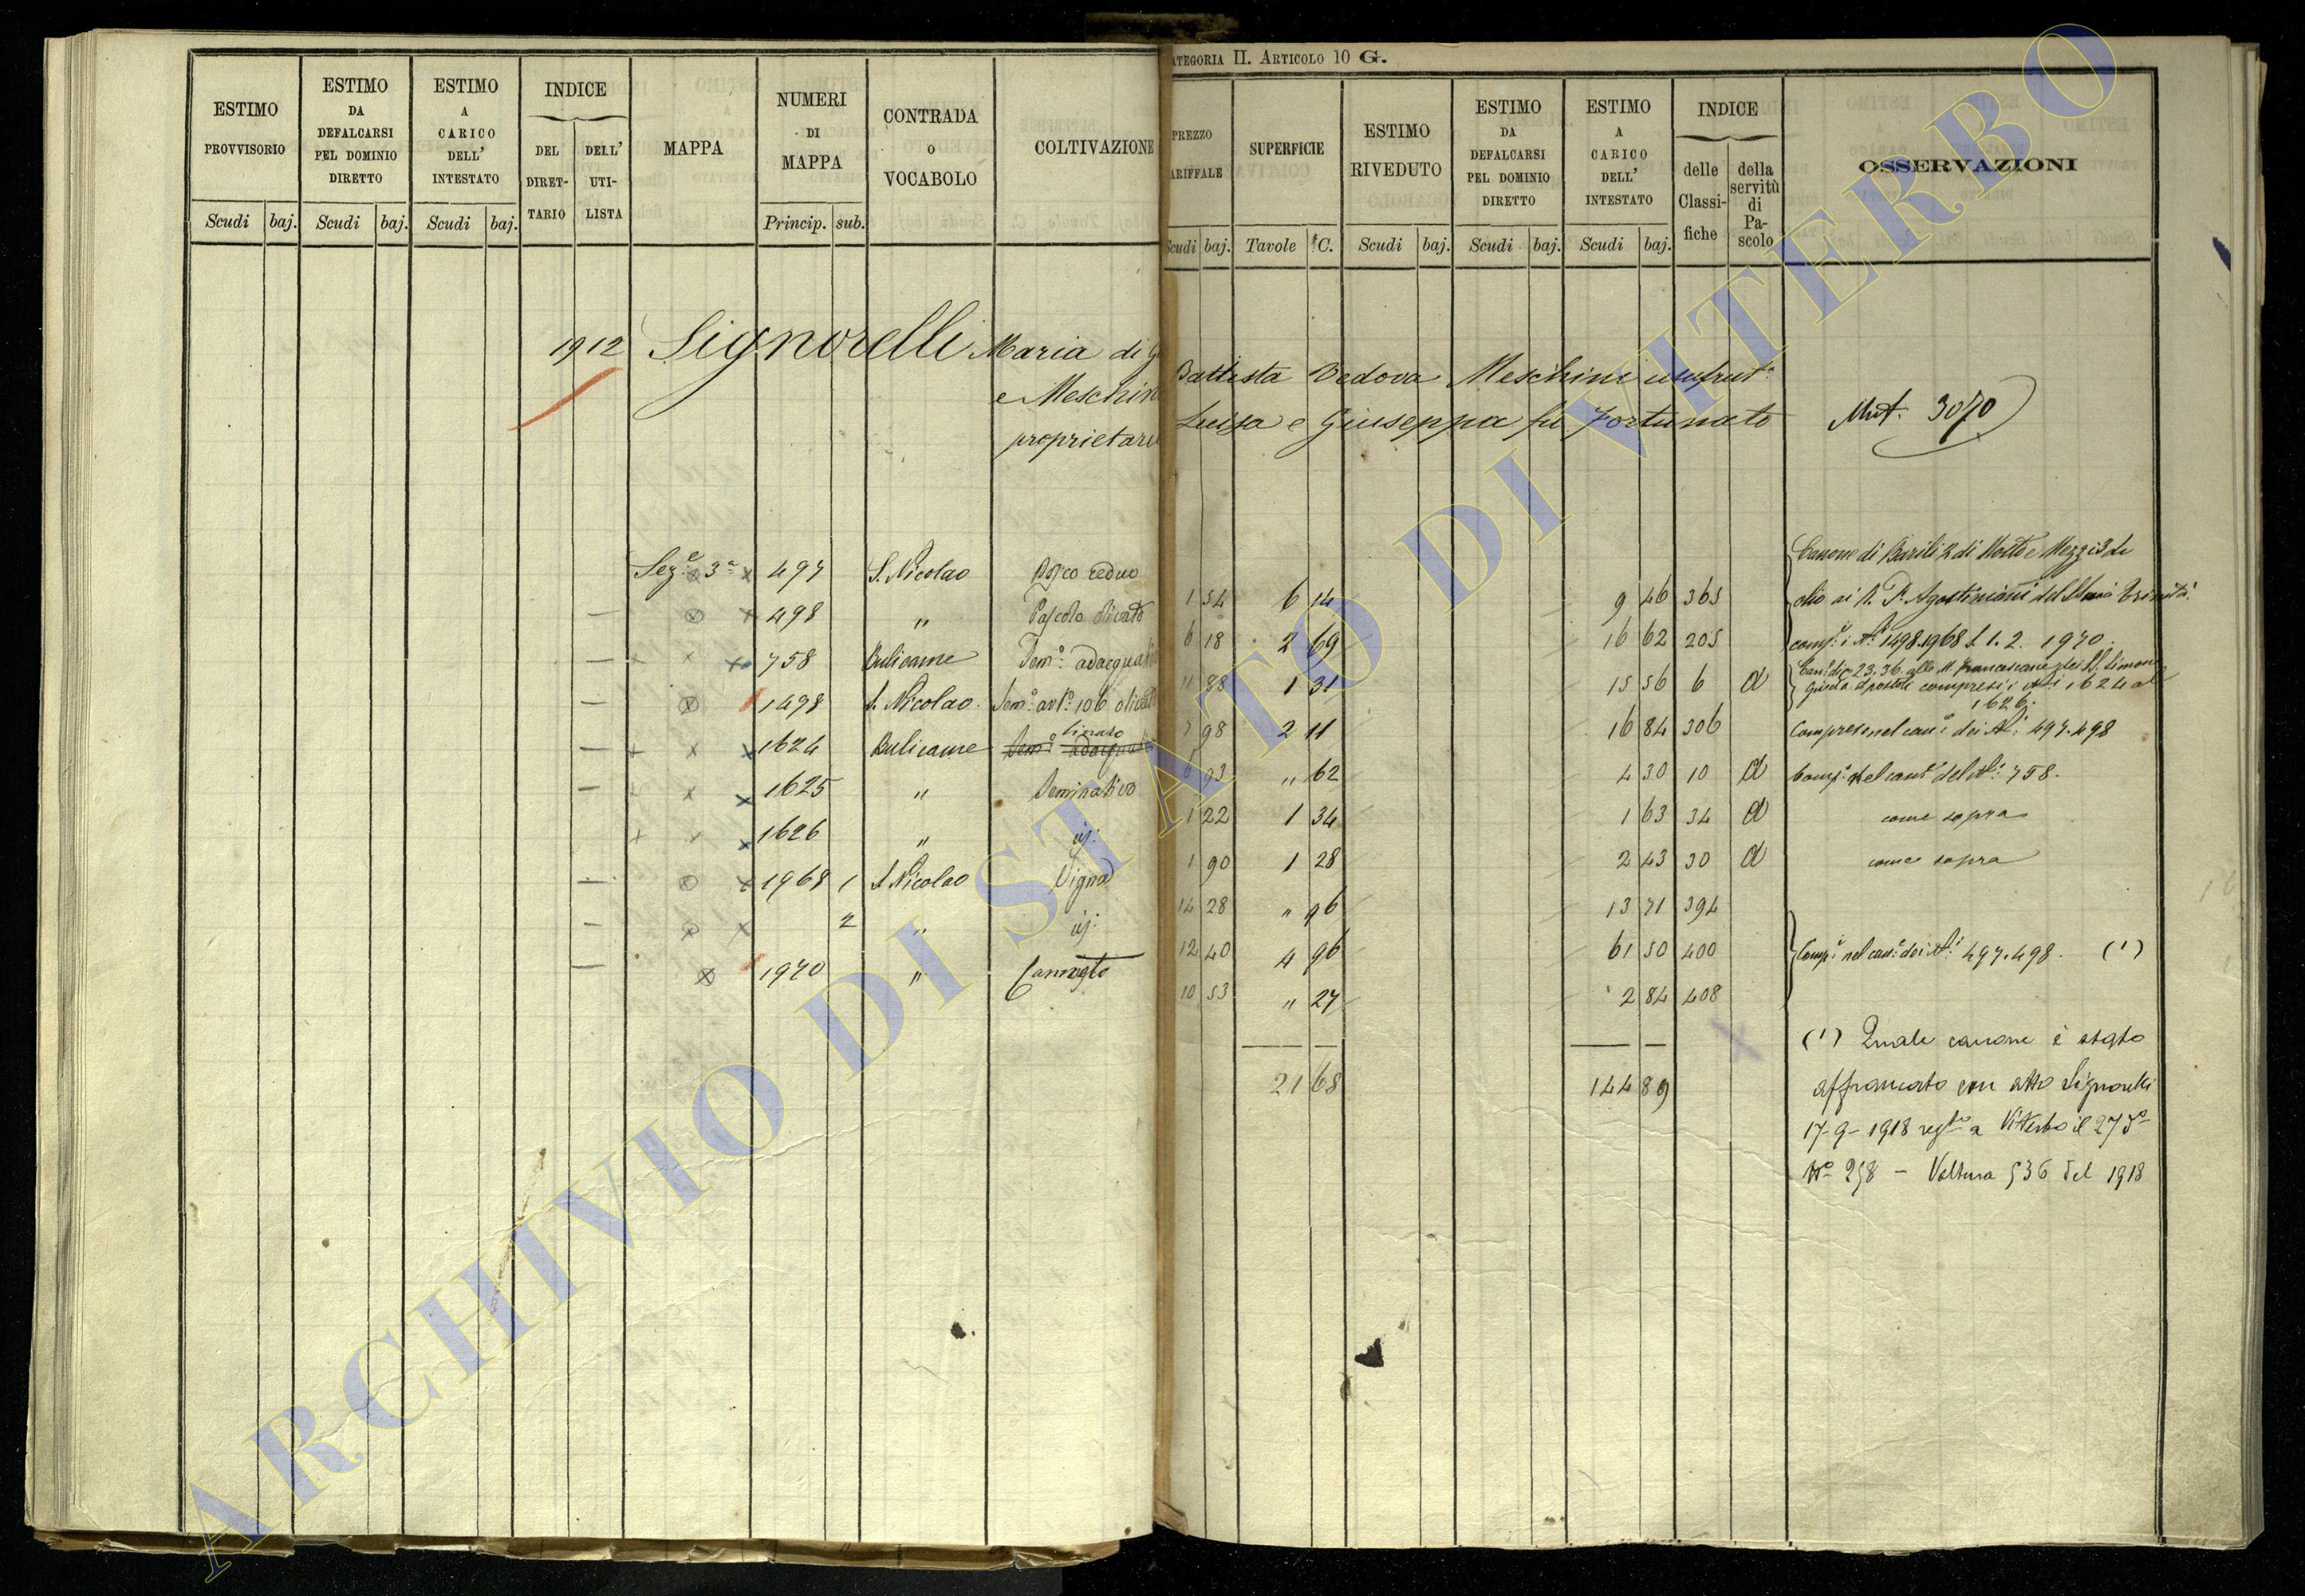 CATEGORIA II. ARTICOLO 10 G.
ESTIMO PROVVISORIO
ESTIMO DA DEFALCARSI PEL DOMINIO DIRETTO
ESTIMO A CARICO DELL' INTESTATO
INDICE
DEL DIRETTARIO
DELL' UTILISTA
MAPPA
NUMERI DI MAPPA
CONTRADA O VOCABOLO
COLTIVAZIONE
PREZZO TARIFFALE
SUPERFICIE
ESTIMO RIVEDUTO
ESTIMO DA DEFALCARSI PEL DOMINIO DIRETTO
ESTIMO A CARICO DELL' INTESTATO
INDICE
delle Classifiche
della servitù di Pascolo
OSSERVAZIONI
Scudi baj. Scudi baj. Scudi baj. Princip. sub.
Scudi baj. Tavole C. Scudi baj. Scudi baj. Scudi baj.
1912 Signorelli Maria di G Battista Vedova Meschini usufrut.
e Meschin Luisa e Giuseppa fu Fortunato
proprietari
Mut. 3070
Sez.e 3a 497 S. Nicolao Bosco ceduo 1 54 6 14 9 46 365
498 " Pascolo olivato 6 18 2 69 16 62 205
758 Bulicame Sem.o adacquat 11 88 1 31 15 56 6 a
1498 S. Nicolao Sem.o 106 olivat 7 98 2 11 16 84 306
1624 Bulicame Sem.o adacquat 6 93 " 62 4 30 10 a
1625 " Seminativo 1 22 1 34 1 63 34 a
1626 " id. 1 90 1 28 2 43 30 a
1968 1 S Nicolao Vigna 14 28 " 96 13 71 394
2 " id. 12 40 4 96 61 50 400
1970 " Canneto 10 53 " 27 2 84 408
21 68 144 89
Canone di Barili 2 di Mosto e Mezzi 3 di
olio ai R. P. Agostiniani del Trinità
comp. i N.i 1498.1968 S. 1. 2. 1970.
Can. di 23.36 alle M. Francescane dei SS. Simone
Giuda apostoli compresi i N.i 1624 al
1626.
Compreso nel can.e dei N.i 497.498
Comp. nel can. del N. 758.
come sopra
come sopra
Comp. nel can. dei N.i 497.498. (1)
(1) Quale canone è stato
affrancato con atto Signorelli
17-9-1918 reg.to a Viterbo il 27 d.o
N.o 258 - Voltura 536 del 1918
ARCHIVIO DI STATO DI VITERBO